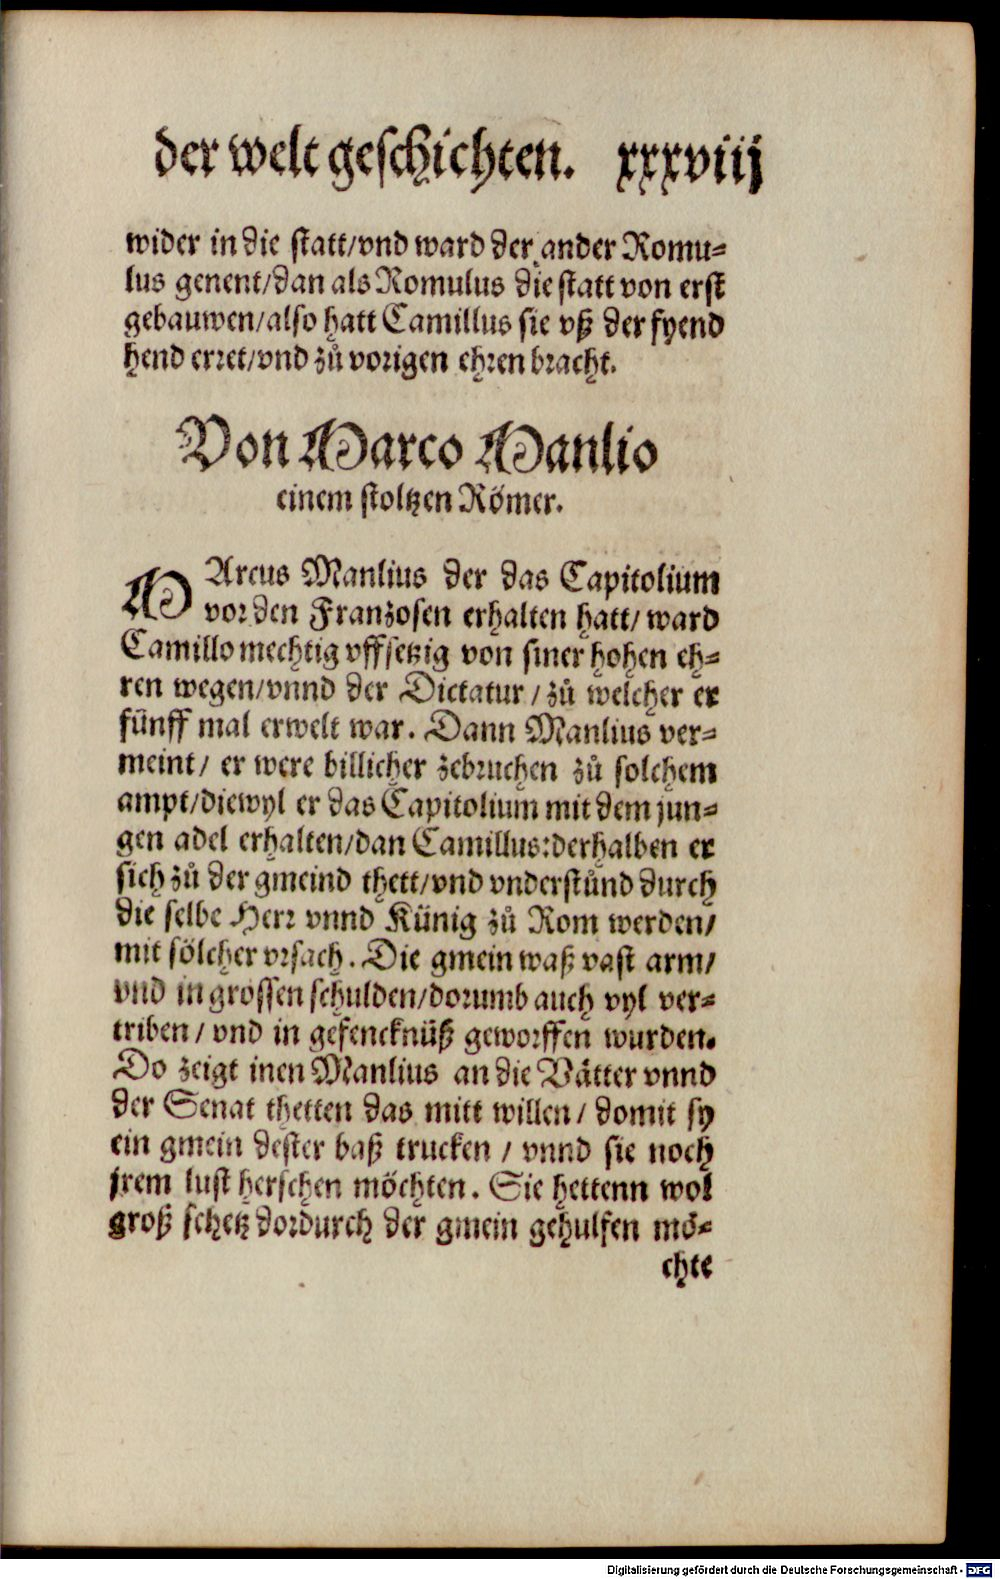 der welt geschichten. xxxviij
wider in die statt/vnd ward der ander Romu=
lus genent/dan als Romulus die statt von erst
gebauwen/also hatt Camillus sie vß der fyend
hend erret/vnd zů vorigen ehren bracht.
Von Marco Manlio
einem stoltzen Römer.
MArcus Manlius der das Capitolium
vor den Franzosen erhalten hatt/ ward
Camillo mechtig vffsetzig von siner hohen eh=
ren wegen/vnnd der Dictatur / zů welcher er
fünff mal erwelt war. Dann Manlius ver=
meint/ er were billicher zebruchen zů solchem
ampt/diewyl er das Capitolium mit dem jun=
gen adel erhalten/dan Camillus:derhalben er
sich zů der gmeind thett/vnd vnderstůnd durch
die selbe Herr vnnd Künig zů Rom werden/
mit sölcher vrsach. Die gmein waß vast arm/
vnd in grossen schulden/dorumb auch vyl ver=
triben / vnd in gefencknüß geworffen wurden.
Do zeigt inen Manlius an die Vätter vnnd
der Senat thetten das mitt willen / domit sy
ein gmein dester baß trucken / vnnd sie noch
jrem lust herschen möchten. Sie hettenn wol
groß schetz dordurch der gmein gehulfen mö=
chte
Digitalisierung gefördert durch die Deutsche Forschungsgemeinschaft - DFG